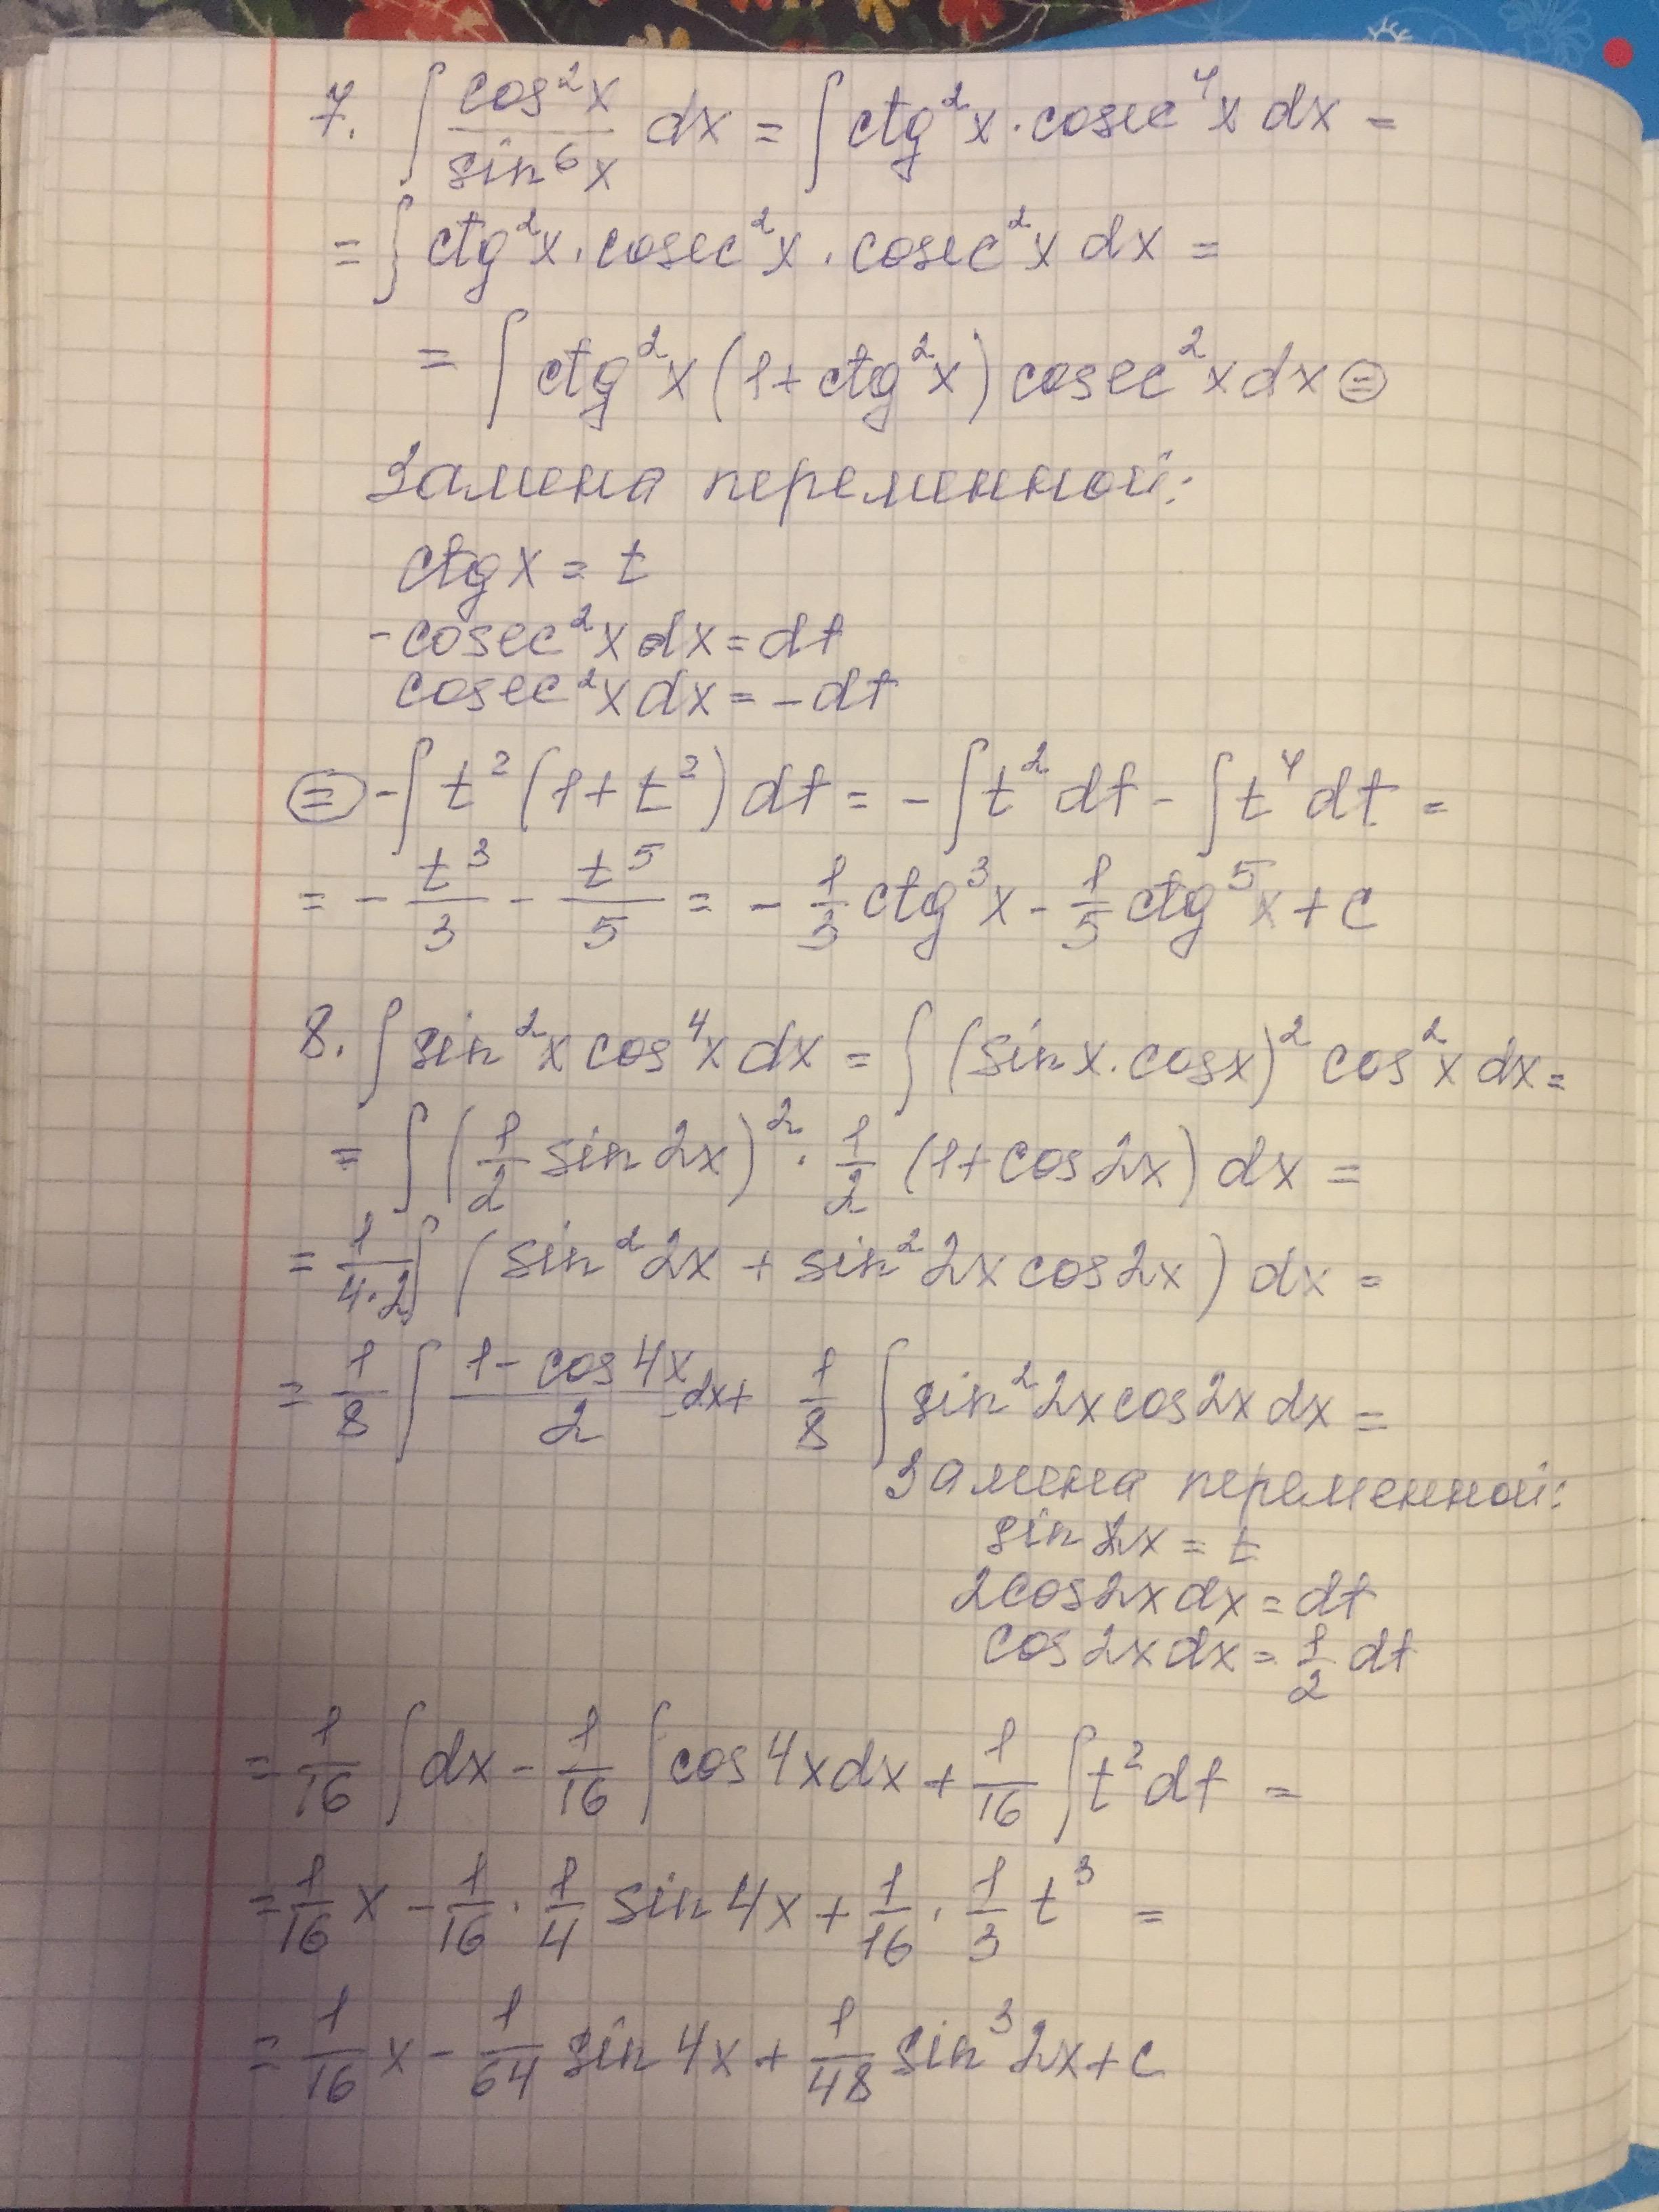 7. ∫ cos²x / sin⁶x dx = ∫ ctg²x · cosec⁴x dx =
= ∫ ctg²x · cosec²x · cosec²x dx =
= ∫ ctg²x (1 + ctg²x) cosec²x dx ⊜
Замена переменной:
ctg x = t
- cosec²x dx = dt
cosec²x dx = - dt
⊜ - ∫ t² (1 + t²) dt = - ∫ t² dt - ∫ t⁴ dt =
= - t³/3 - t⁵/5 = - 1/3 ctg³x - 1/5 ctg⁵x + c
8. ∫ sin²x cos⁴x dx = ∫ (sin x · cos x)² cos²x dx =
= ∫ (1/2 sin 2x)² · 1/2 (1 + cos 2x) dx =
= 1/(4·2) ∫ (sin²2x + sin²2x cos 2x) dx =
= 1/8 ∫ (1 - cos 4x)/2 dx + 1/8 ∫ sin²2x cos 2x dx =
Замена переменной:
sin 2x = t
2cos 2x dx = dt
cos 2x dx = 1/2 dt
= 1/16 ∫ dx - 1/16 ∫ cos 4x dx + 1/16 ∫ t² dt =
= 1/16 x - 1/16 · 1/4 sin 4x + 1/16 · 1/3 t³ =
= 1/16 x - 1/64 sin 4x + 1/48 sin³2x + c